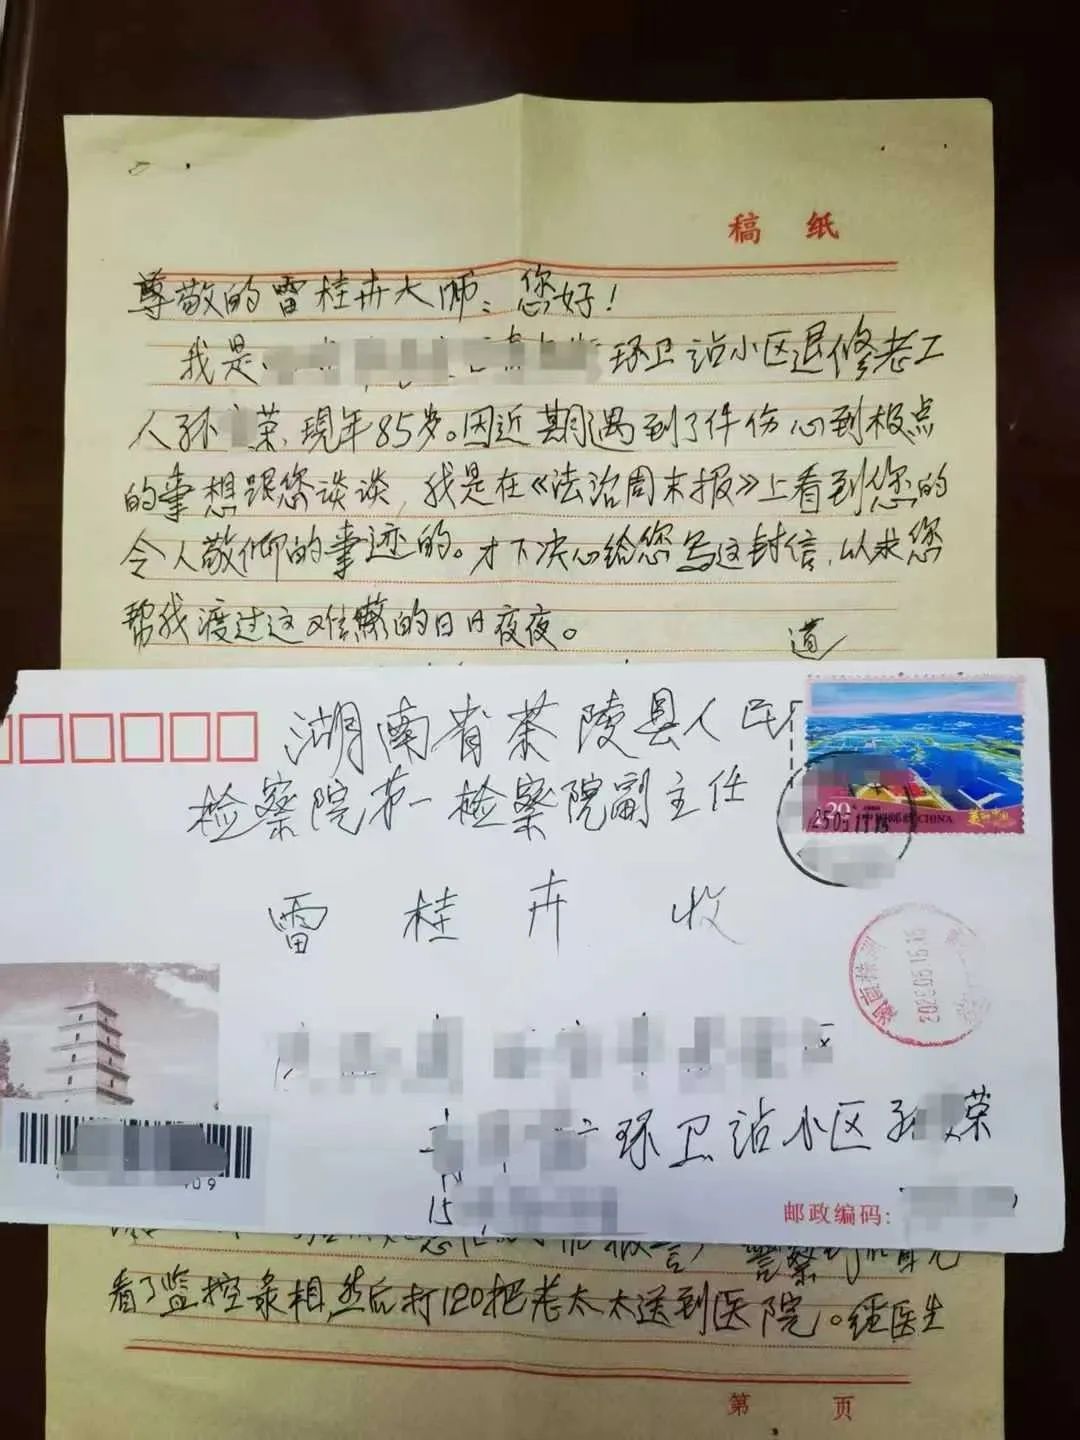 稿 纸
尊敬的雷桂卉大师：您好！
我是 环卫站小区退修老工
人孙 荣、现年85岁。因近期遇到了件伤心到极点
的事想跟您谈谈，我是在《法治周末报》上看到您的
令人敬仰的事迹的。才下决心给您写这封信，以求您
帮我渡过这难熬的日日夜夜。
道
湖南省茶陵县人民
检察院第一检察院副主任
雷桂卉 收
中国邮政 CHINA
环卫站小区 孙 荣
15
邮政编码：
09
看了监控录相，然后打120把老太太送到医院。经医生
第 页